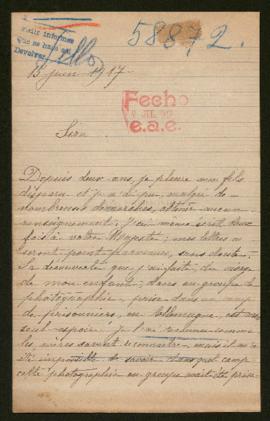 Pedir informes
que se hace así
Devolver
58872.
15 juin 1917
Fecho
e.a.e.
Sire
Depuis deux ans, je pleure mon fils
disparu et je n'ai pu, malgré de
nombreuses démarches, obtenir aucun
renseignement; J'ai même écrit deux
fois à votre Majesté; mes lettres ne
seront point parvenues, sans doute.
La découverte que j'ai faite du visage
de mon enfant, dans un groupe de
photographie, prise dans un camp
de prisonniers, en Allemagne, est mon
seul espoir. Je l'ai reconnu comme
les mères savent reconnaître, mais il m'a
été impossible de savoir dans quel camp
cette photographie en groupe avait été prise